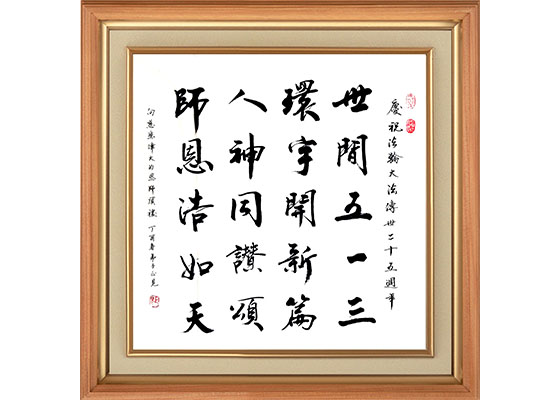 慶祝法輪大法傳世二十五週年
世間五一三
環宇開新篇
人神同讚頌
師恩浩如天
向慈悲偉大的恩師頂禮 丁酉春弟子